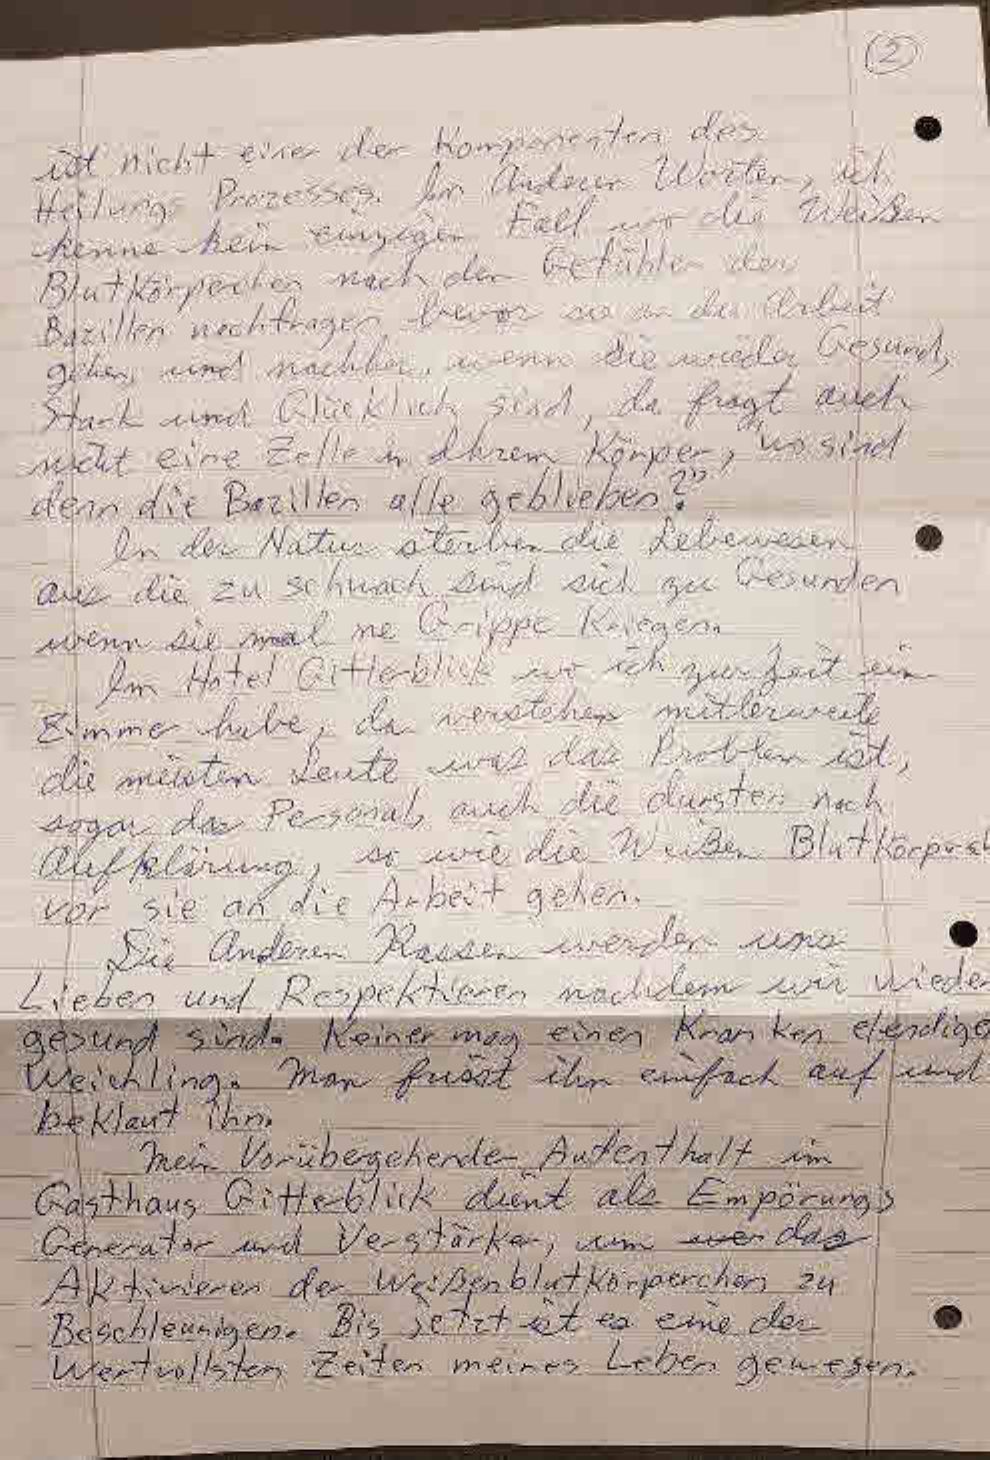 (2)
ist nicht einer der Komponenten des
Heilungs Prozesses. In Anderen Worten, ich
kenne kein einzigen Fall wo die Weißen
BlutKörperchen nach den Gefühlen der
Bazillen nachfragen bevor sie an die Arbeit
gehen, und nachher, wenn sie wieder Gesund,
Stark und Glücklich sind, da fragt auch
nicht eine Zelle in Ihrem Körper, "wo sind
denn die Bazillen alle geblieben?"
In der Natur sterben die Lebewesen
aus die zu schwach sind sich zu Gesunden
wenn sie mal ne Grippe Kriegen.
Im Hotel Gitterblick wo ich zur Zeit ein
Zimmer habe, da verstehen mitlerweile
die meisten Leute was das Problem ist,
sogar das Personal, auch die dursten nach
Aufklärung, so wie die Weißen BlutKörperch
vor sie an die Arbeit gehen.
Die Anderen Rassen werden uns
Lieben und Respektieren nachdem wir wieder
gesund sind. Keiner mag einen Kranken elendigen
Weichling. Man frisst ihn einfach auf und
beklaut ihn.
Mein Vorübergehender Aufenthalt im
Gasthaus Gitterblick dient als Empörungs
Generator und Verstärker, um das
Aktivieren der Weißenblutkörperchen zu
Beschleunigen. Bis jetzt ist es eine der
Wertvollsten Zeiten meines Leben gewesen.